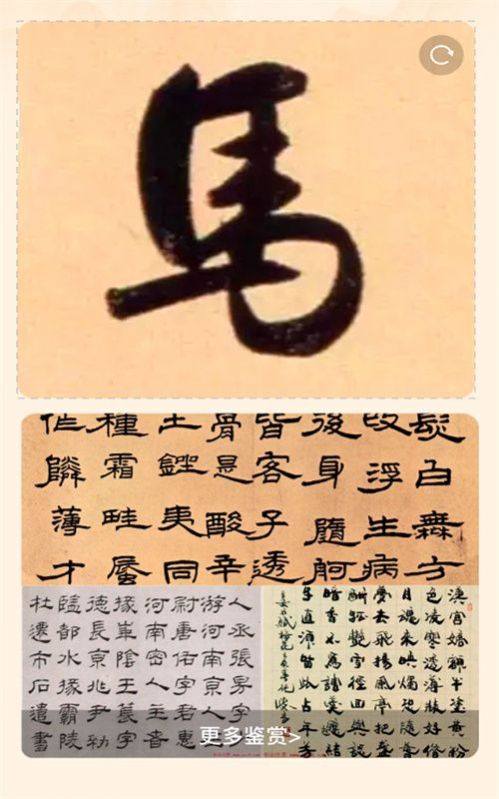 馬
白無方
浮生病
後身隨舸
皆客子透
骨是酸辛
土夷同
種霜畦蜃
作鄰薄才
人丞張昇字
游河南京人
尉唐佑字君惠
河南密人主者
掾華陰王萇字
德長京兆尹勑
監都水掾霸陵
杜遷市石遣書
漢宮嬌額半塗黃粉
色凌寒透薄裝好借
月魂來映燭恐隨春
夢去飛揚風亭把盞
酬孤艷雪徑回輿認
暗香不為調羹應結
子直須留此占年芳
更多鉴赏>